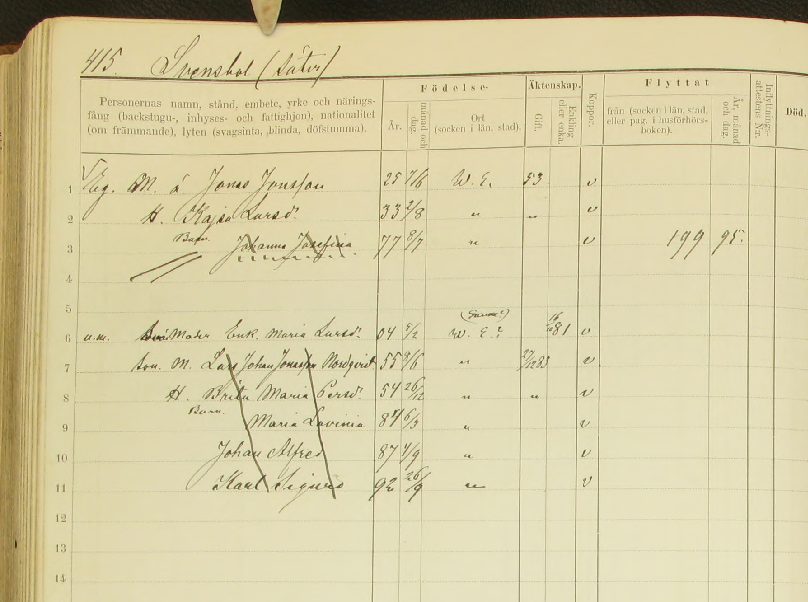 415. Svensbol (Säter)
Personernas namn, stånd, embete, yrke och närings-
fång (backstugu-, inhyses- och fattighjon), nationalitet
(om främmande), lyten (svagsinta, blinda, döfstumma).
Födelse-
År.
månad och dag.
Ort
(socken i län, stad).
Äktenskap.
Gift.
Enkling eller enka.
Koppor.
Flyttat
från (socken i län, stad,
eller pag. i husförhörs-
boken).
År, månad och dag.
Inflyttnings-attestens N:r.
Död.
1 Eg. M. å Jonas Jonsson 25 7/6 W. E. 53 v
2 H. Kajsa Larsd. 33 2/8 " " v
3 Barn Johanna Josefina 77 8/7 " v 199 95.
4
5
6 Moder Enk. Maria Larsd. 04 5/2 W. E. 81 v
7 Son. M. Lars Johan Jonsson Nordqvist 55 9/6 " 27/12 83 v
8 H. Brita Maria Persd. 54 26/12 " " v
9 Barn Maria Lovinia 84 6/3 " v
10 Johan Alfred 87 4/9 " v
11 Karl Sigurd 92 26/9 " v
12
13
14